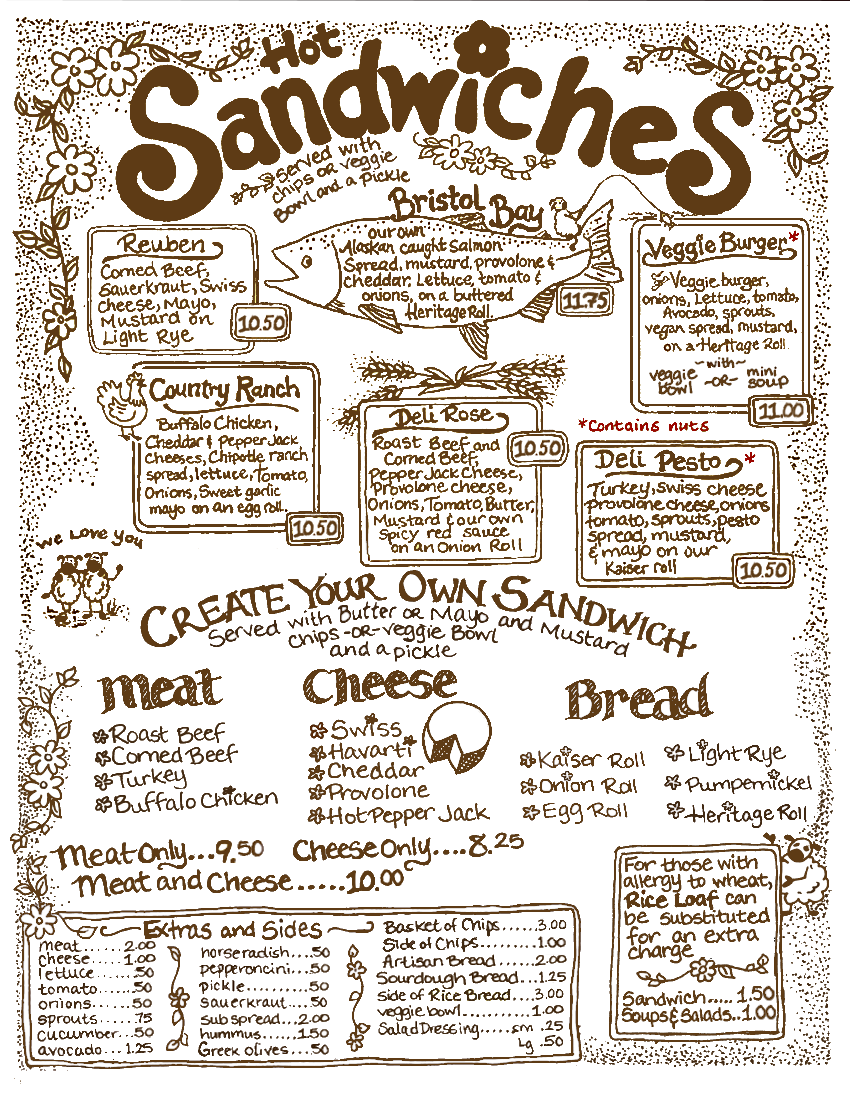 Hot
Sandwiches
Served with
chips or veggie
Bowl and a pickle
Bristol Bay
our own
Alaskan caught Salmon
Spread, mustard, provolone &
cheddar, Lettuce, tomato &
onions, on a buttered
Heritage Roll.
11.75
Reuben
Corned Beef,
Sauerkraut, Swiss
cheese, Mayo,
Mustard on
Light Rye
10.50
Veggie Burger*
Veggie burger,
onions, Lettuce, tomato,
Avocado, sprouts,
vegan spread, mustard,
on a Heritage Roll
~with~
veggie bowl ~OR~ mini soup
11.00
Country Ranch
Buffalo Chicken,
Cheddar & Pepper Jack
Cheeses, Chipotle ranch
spread, lettuce, Tomato,
Onions, Sweet garlic
mayo on an egg roll.
10.50
Deli Rose
Roast Beef and
Corned Beef,
Pepper Jack Cheese,
Provolone cheese,
Onions, Tomato, Butter,
Mustard & our own
Spicy red sauce
on an Onion Roll
10.50
*Contains nuts
Deli Pesto *
Turkey, Swiss cheese
Provolone cheese, onions
tomato, sprouts, pesto
spread, mustard,
& mayo on our
Kaiser roll
10.50
We Love you
Create Your Own Sandwich
Served with Butter or Mayo and Mustard
Chips -OR- Veggie Bowl
and a pickle
Meat
Roast Beef
Corned Beef
Turkey
Buffalo Chicken
Cheese
Swiss
Havarti
Cheddar
Provolone
Hot Pepper Jack
Bread
Kaiser Roll
Onion Roll
Egg Roll
Light Rye
Pumpernickel
Heritage Roll
Meat Only...9.50
Cheese Only....8.25
Meat and Cheese.....10.00
For those with
allergy to wheat,
Rice Loaf can
be substituted
for an extra
charge
Sandwich..... 1.50
Soups & Salads..1.00
Extras and Sides
meat...... 2.00
cheese.... 1.00
lettuce..... .50
tomato..... .50
onions...... .50
sprouts..... .75
cucumber... .50
avocado... 1.25
horseradish.... .50
pepperoncini... .50
pickle.......... .50
sauerkraut.... .50
sub spread...2.00
hummus......1.50
Greek olives... .50
Basket of Chips......3.00
Side of Chips.........1.00
Artisan Bread.......2.00
Sourdough Bread...1.25
side of Rice Bread....3.00
veggie bowl...........1.00
Salad Dressing.....sm .25
Lg .50